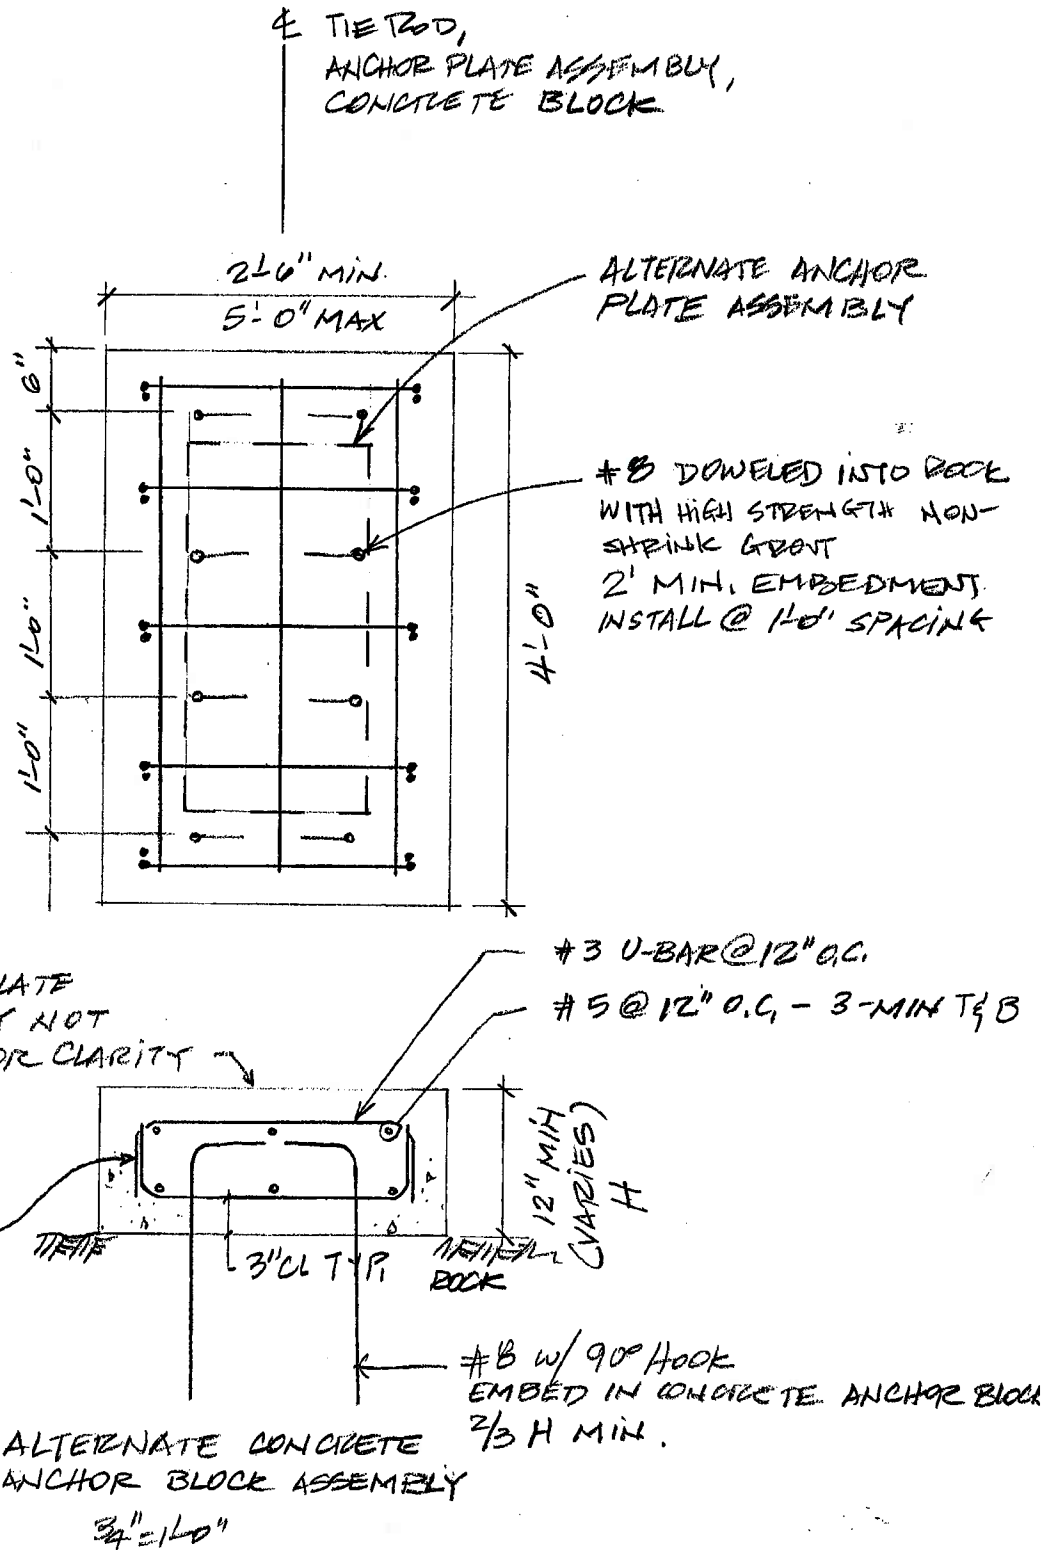 ℄ TIE ROD,
ANCHOR PLATE ASSEMBLY,
CONCRETE BLOCK
2'-6" MIN.
5'-0" MAX
ALTERNATE ANCHOR
PLATE ASSEMBLY
6"
1'-0"
1'-0"
1'-0"
4'-0"
#8 DOWELED INTO ROCK
WITH HIGH STRENGTH NON-
SHRINK GROUT
2' MIN. EMBEDMENT
INSTALL @ 1'-0" SPACING
#3 U-BAR @ 12" O.C.
#5 @ 12" O.C. - 3-MIN T&B
LATE
Y NOT
OR CLARITY
12" MIN
(VARIES)
H
3" CL TYP.
ROCK
#8 W/ 90° HOOK
EMBED IN CONCRETE ANCHOR BLOCK
2/3 H MIN.
ALTERNATE CONCRETE
ANCHOR BLOCK ASSEMBLY
3/4"=1'-0"